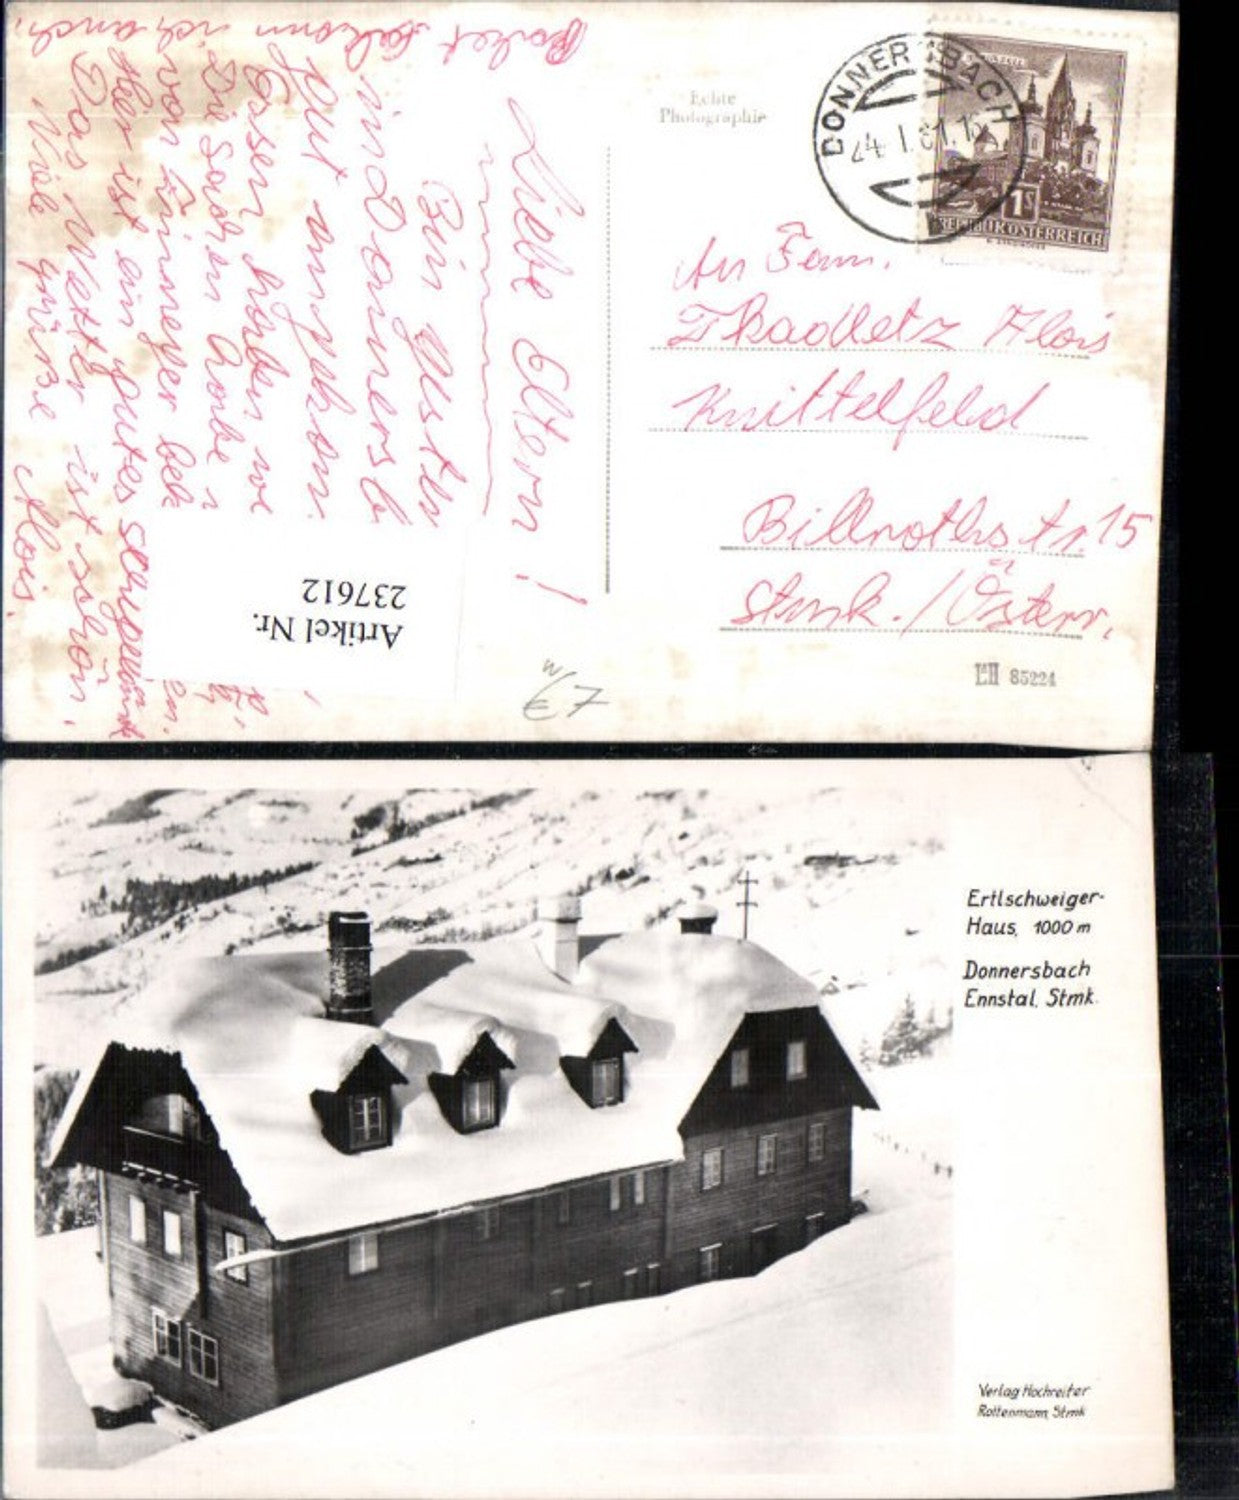 Liebe Eltern!
Bin Gestern
in Donnersb
gut angekom.
Essen haben wir
Die Sachen habe i
von Zimmer
Hier ist ein gutes
Das Wetter ist schön.
Viele grüße Alois.
Echte
Photographie
DONNERSBACH
24. I. 61
1S
REPUBLIK ÖSTERREICH
An Fam.
Tkadletz Alois
Knittelfeld
Billrothstr. 15
Stmk./Österr.
LH 85224
€7
Artikel Nr.
237612
Ertlschweiger-
Haus, 1000 m
Donnersbach
Ennstal, Stmk.
Verlag Hochreiter
Rottenmann, Stmk